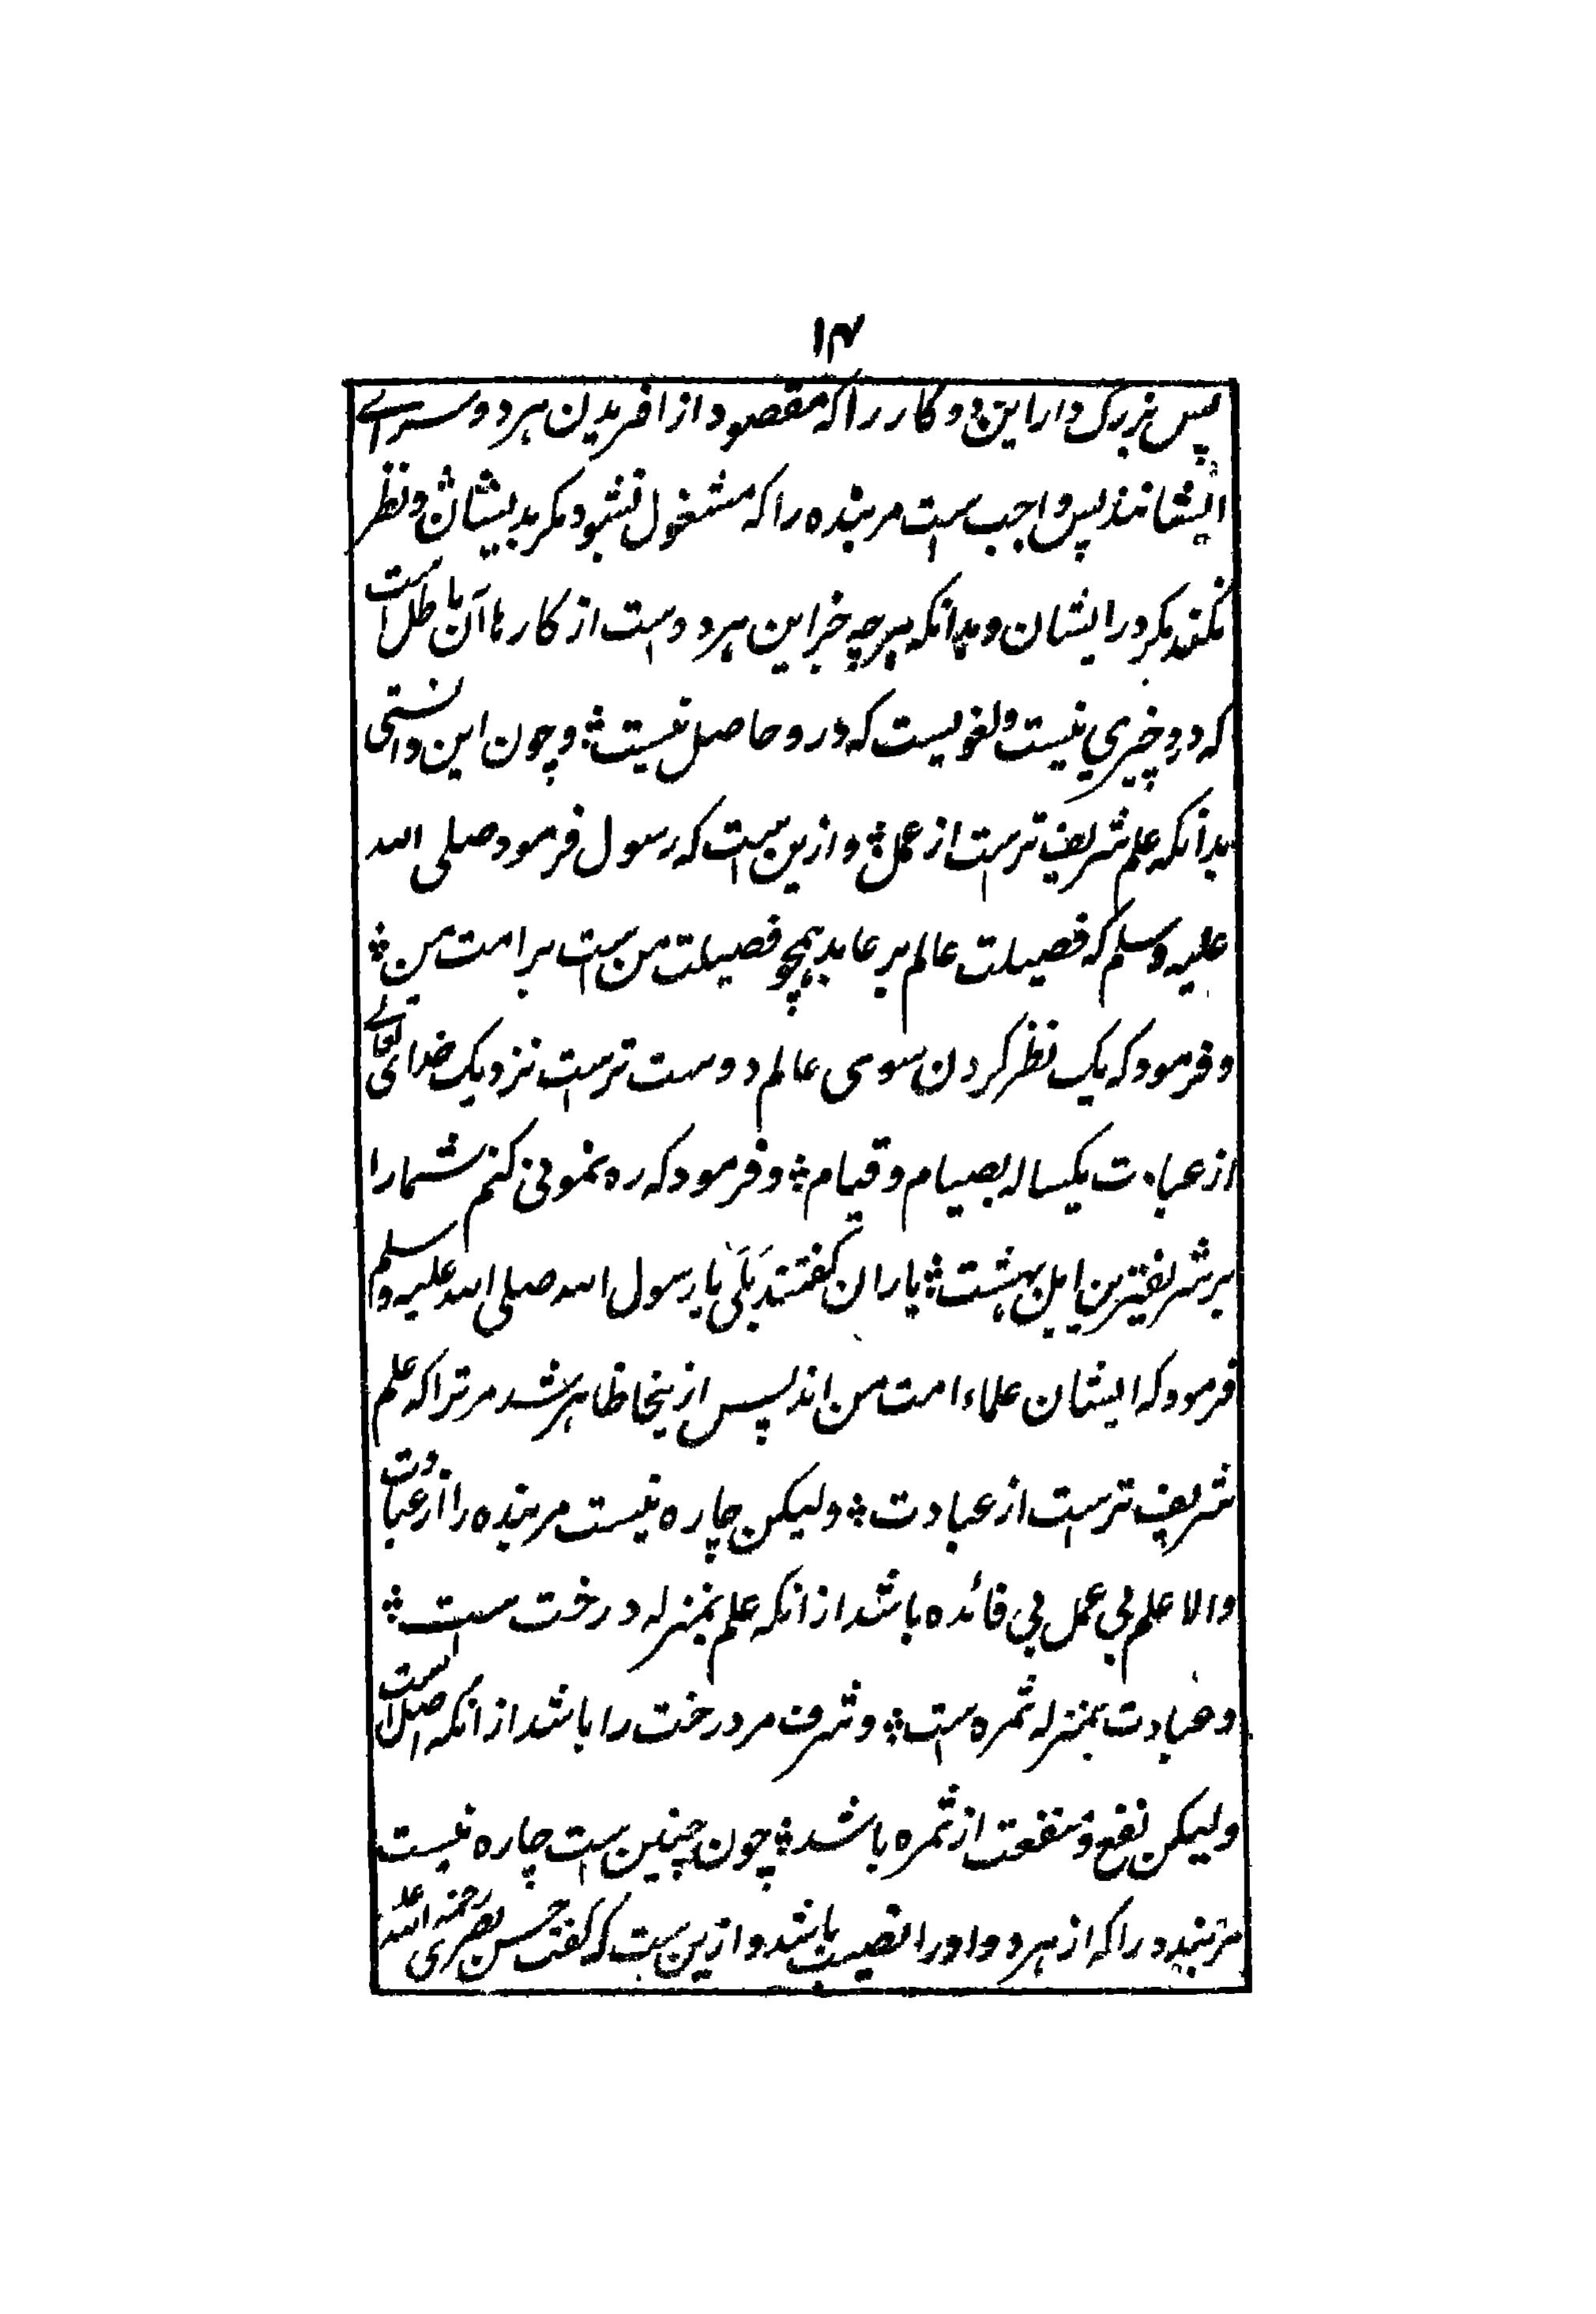 ۱۴
پس بزرگ دار این دو کار را که مقصود از افریدن هر دو سرای
ایشانند پس واجب ست مر بنده را که مشغول نشود مکر بدیشان و نظر
نکند مکر در ایشان و بدانکه هرچه جز این هر دو است از کارها آن باطل است
که درو خیري نیست و لغویست که درو حاصل نیست ؞ و چون این دانستی
بدانکه علم شریف ترست از عمل ؞ و ازین ست که رسول فرمود صلی الله
علیه وسلم که فضیلت عالم بر عابد همچو فضیلت من ست بر امت من ؞
و فرمود که یک نظر کردن سوی عالم دوست ترست نزدیک خدای تعالے
از عبادت یکساله بصیام و قیام ؞ و فرمود که ره نمونی کنم شما را
بر شریفترین اهل بهشت ؞ یاران کفتند بَلَی یا رسول الله صلی الله علیه وسلم
فرمود که ایشان علماء امت من اند پس ازینجا ظاهر شد مر ترا که علم
شریف ترست از عبادت ؞ ولیکن چاره نیست مر بنده را از عبادت
والا علم بی عمل بی فائده باشد از انکه علم بمنزله درخت ست ؞
و عبادت بمنزله ثمره ست ؞ و شرف مر درخت را باشد از انکه اصل است
ولیکن نفع و منفعت از ثمره باشد ؞ چون چنین ست چاره نیست
مر بنده را که از هر دو اورا نصیب باشد و ازین ست که کفت حسن بصری رحمة الله علیه